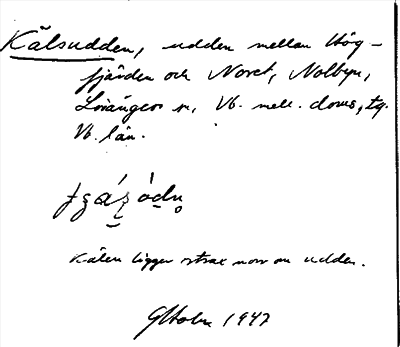 Kälsudden, udden mellan Hög-
fjärden och Noret, Nolbyn,
Lövångers sn, Vb. mell. doms, tg.
Vb. län.
Kälen ligger strax norr om udden.
1947